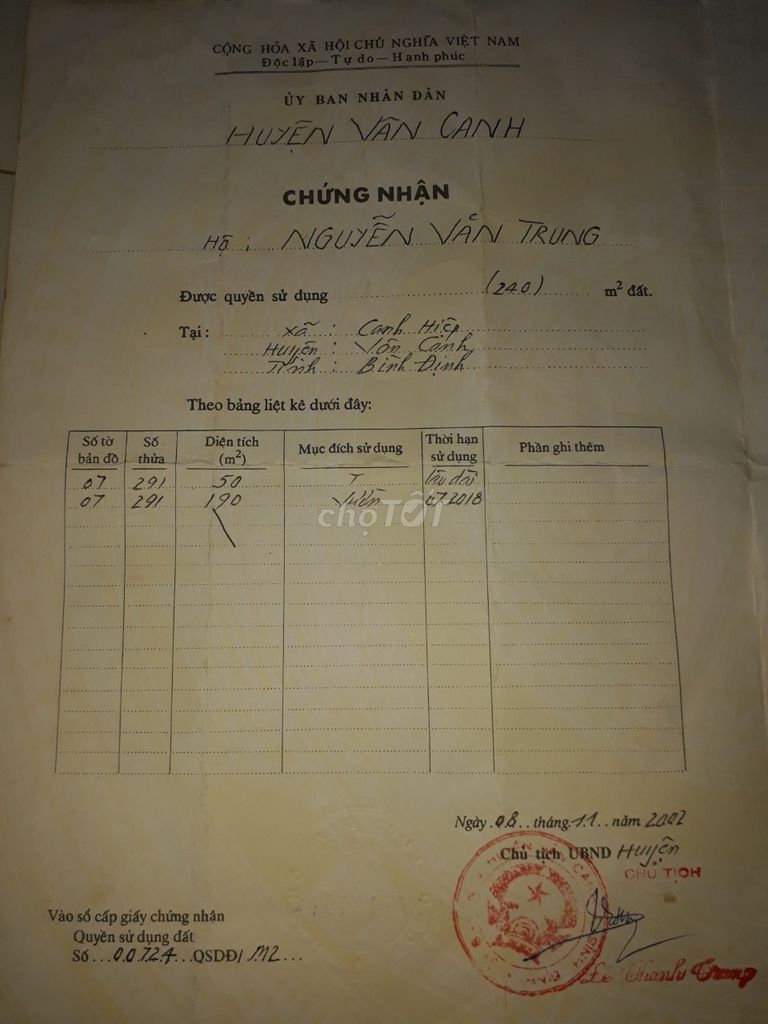 CỘNG HÒA XÃ HỘI CHỦ NGHĨA VIỆT NAM
Độc lập — Tự do — Hạnh phúc
ỦY BAN NHÂN DÂN
HUYỆN VÂN CANH
CHỨNG NHẬN
Hộ : NGUYỄN VĂN TRUNG
Được quyền sử dụng (240) m² đất.
Tại : Xã : Canh Hiệp
Huyện : Vân Canh
Tỉnh : Bình Định
Theo bảng liệt kê dưới đây:
Số tờ bản đồ Số thửa Diện tích (m²) Mục đích sử dụng Thời hạn sử dụng Phần ghi thêm
07 291 50 T lâu dài
07 291 190 Vườn 07.2018
chợTỐT
Ngày 08 tháng 11 năm 2002
Chủ tịch UBND Huyện
CHỦ TỊCH
Vào sổ cấp giấy chứng nhận
Quyền sử dụng đất
Số 00724 QSDĐ/ M2
Lê Thanh Trung